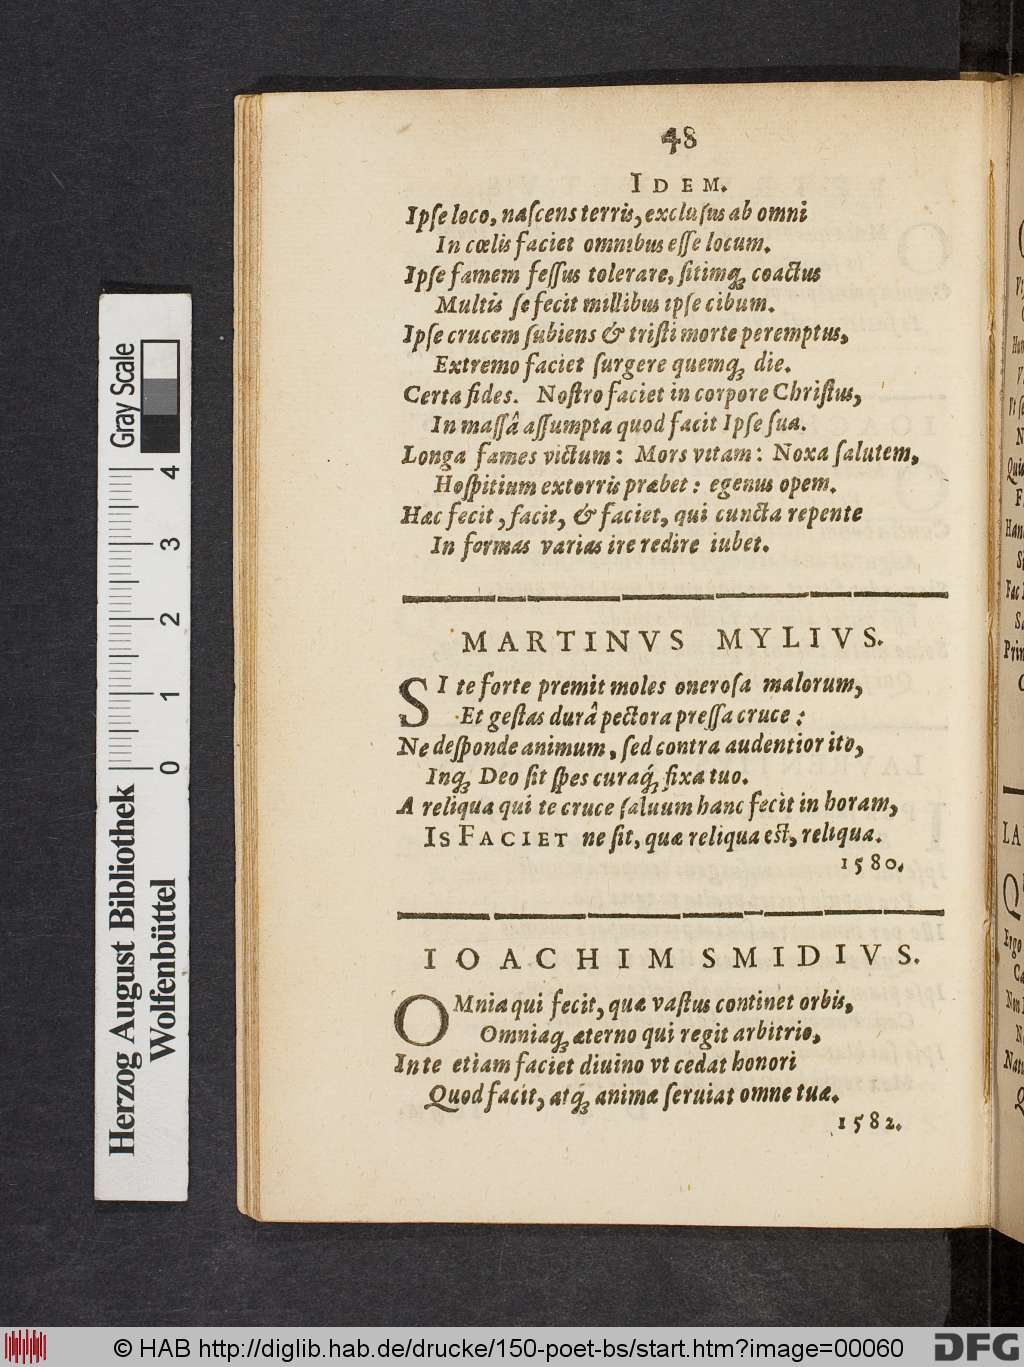 48
IDEM.
Ipſe loco, naſcens terris, excluſus ab omni
In cœlis faciet omnibus eſſe locum.
Ipſe famem feſſus tolerare, ſitimq́; coactus
Multis ſe fecit millibus ipſe cibum.
Ipſe crucem ſubiens & triſti morte peremptus,
Extremo faciet ſurgere quemq́; die.
Certa fides. Noſtro faciet in corpore Chriſtus,
In maſſâ aſſumpta quod facit Ipſe ſua.
Longa fames victum: Mors vitam: Noxa ſalutem,
Hoſpitium extorris præbet: egenus opem.
Hæc fecit, facit, & faciet, qui cuncta repente
In formas varias ire redire iubet.
MARTINVS MYLIVS.
SI te forte premit moles oneroſa malorum,
Et geſtas durâ pectora preſſa cruce:
Ne deſponde animum, ſed contra audentior ito,
Inq́; Deo ſit ſpes curaq́; fixa tuo.
A reliqua qui te cruce ſaluum hanc fecit in horam,
IS FACIET ne ſit, quæ reliqua eſt, reliqua.
1580.
IOACHIM SMIDIVS.
OMnia qui fecit, quæ vaſtus continet orbis,
Omniaq́; æterno qui regit arbitrio,
In te etiam faciet diuino vt cedat honori
Quod facit, atq́; animæ ſeruiat omne tuæ.
1582.
Gray Scale
0 1 2 3 4
Herzog August Bibliothek
Wolfenbüttel
© HAB http://diglib.hab.de/drucke/150-poet-bs/start.htm?image=00060
DFG